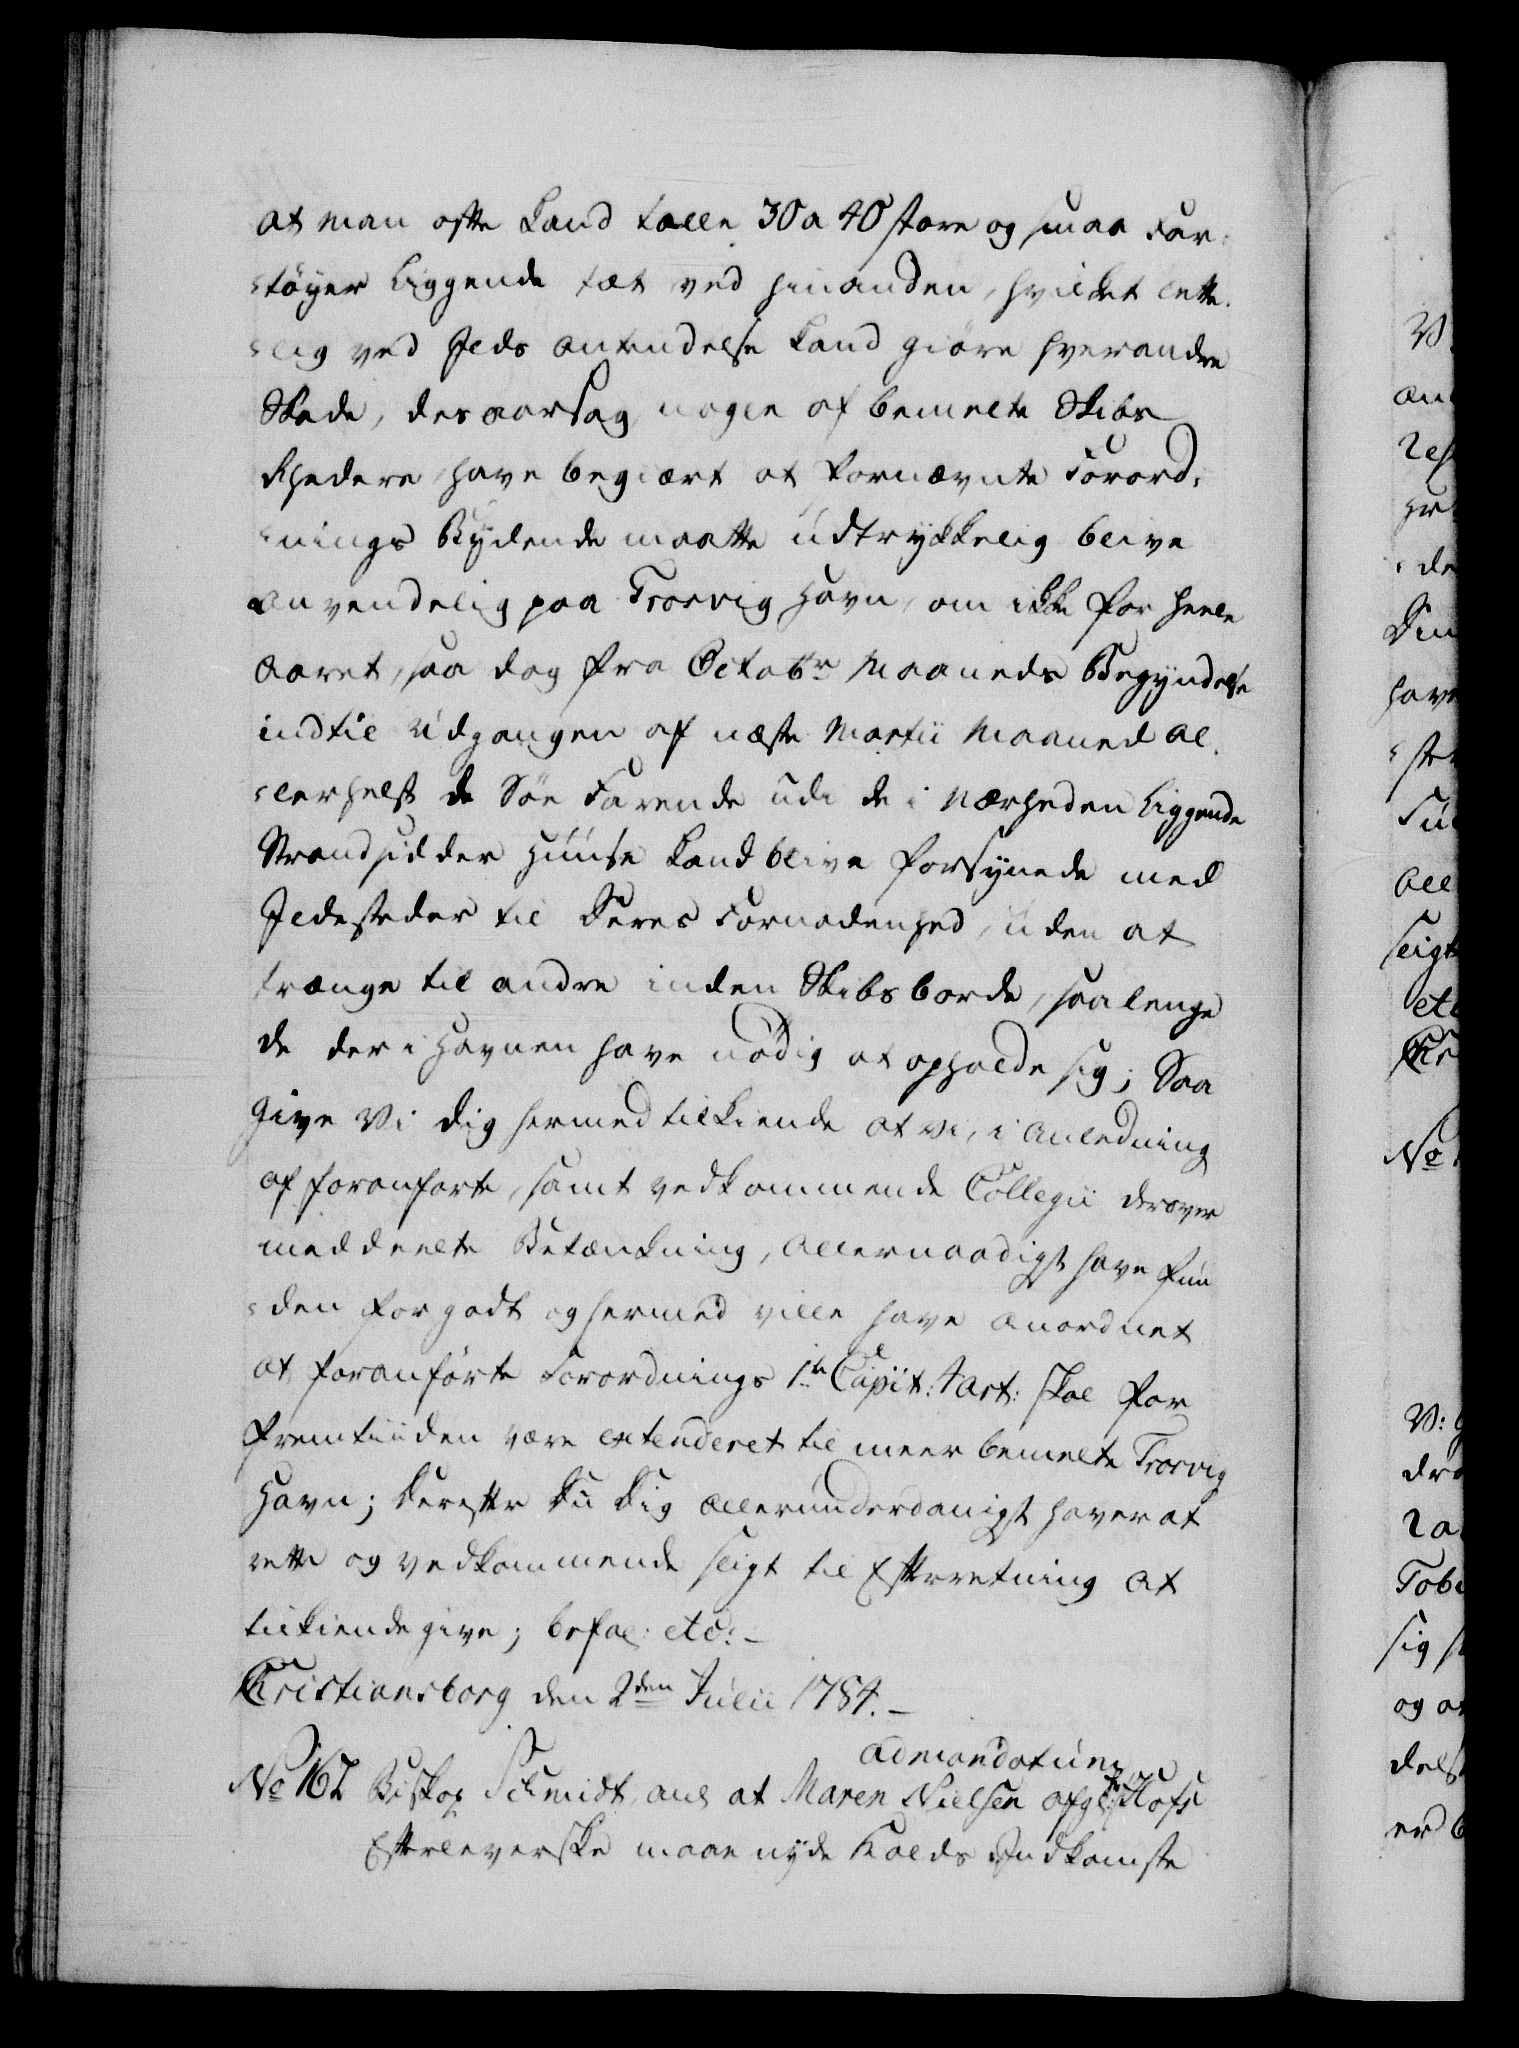 at man ofte kand tælle 30 a 40 store og smaa Far-
-tøyer liggende tæt ved hinanden, hvilket lette-
-lig ved Ilds Antændelse kand giøre hverandre
Skade, desaarsag nogle af bemelte Skibs
Rhedere have begiært at fornævnte Forord-
-nings Bydende maatte udtrykkelig blive
anvendelig paa Trosvig Havn, om ikke for heele
Aaret, saa dog fra Octobr Maaneds Begyndelse
indtil Udgangen af næste Martii Maaned al-
-lerhelst de Søe Farende udi de i Nærheden liggende
Strandsidder Huuse kand blive forsynede med
Ildesteder til deres Fornødenhed, uden at
trænge til andre inden Skibsborde, saalenge
de der i Havnen have nødig at opholde sig; Saa
give Vi dig hermed tilkiende at vi, i Anledning
af foranførte, samt vedkommende Collegii derover
meddeelte Betænkning, allernaadigst have fun-
-den for godt og hermed ville have anordnet
at foranførte Forordnings 1te Capit: 4 Art: skal for
Fremtiden være extenderet til meerbemelte Trosvig
Havn; Derefter Du Dig allerunderdanigst haver at
rette og vedkommende sligt til Efterretning at
tilkiendegive; befal: etc:
Christiansborg den 2den Julii 1784.
ad mandatum
No 162 Biskop Schmidt, anl at Maren Nielsen afg: Hofs
Efterleverske maae nyde Kalds Indkomste